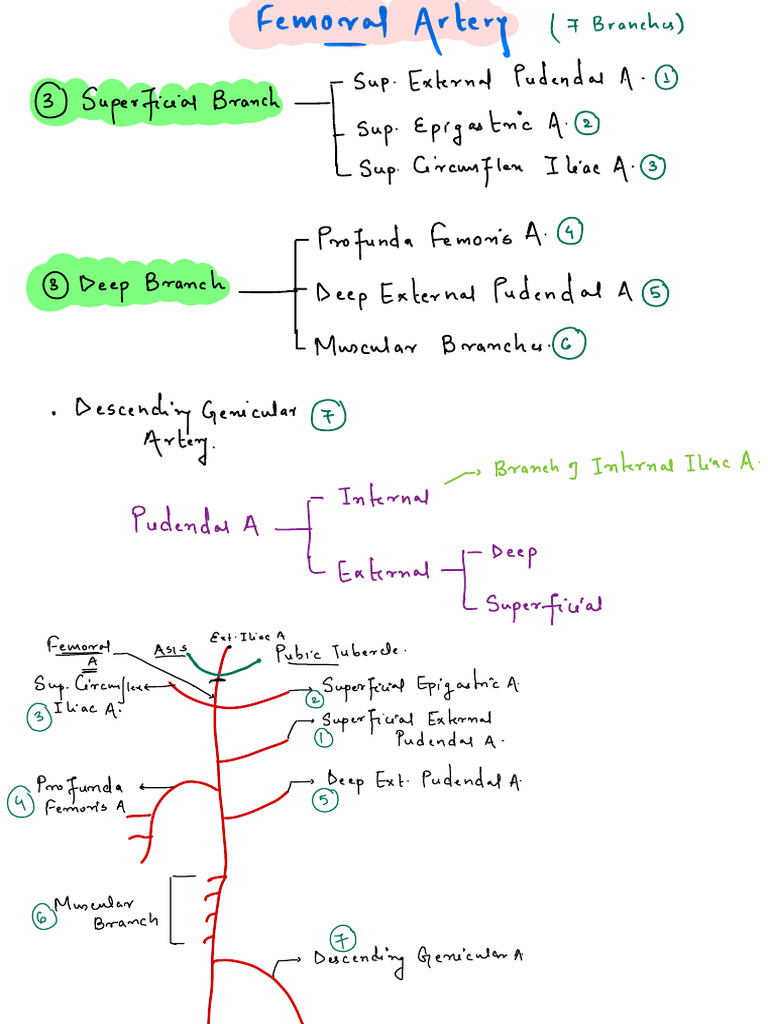 Femoral Artery (7 Branches)
③ Superficial Branch
Sup. External Pudendal A. ①
Sup. Epigastric A. ②
Sup. Circumflex Iliac A. ③
③ Deep Branch
Profunda Femoris A. ④
Deep External Pudendal A ⑤
Muscular Branches. ⑥
. Descending Genicular ⑦
Artery.
Pudendal A
Internal → Branch of Internal Iliac A.
External
Deep
Superficial
Ext. Iliac A
Femoral
A
ASIS
Pubic Tubercle.
Sup. Circumflex
Iliac A.
③
Superficial Epigastric A.
②
Superficial External
Pudendal A.
①
Profunda
Femoris A
④
Deep Ext. Pudendal A.
⑤
Muscular
Branch
⑥
⑦
Descending Genicular A